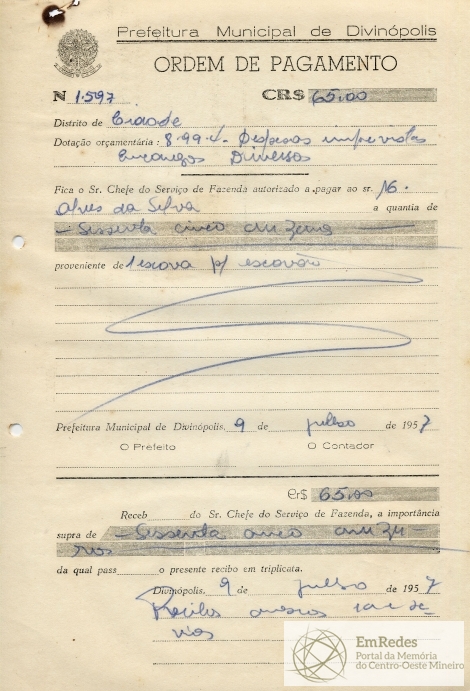 Prefeitura Municipal de Divinópolis
ORDEM DE PAGAMENTO
N 1.597 CR$ 65,00
Distrito de Cidade
Dotação orçamentária : 8-99-4 - Despesas imprevistas
Encargos Diversos
Fica o Sr. Chefe do Serviço de Fazenda autorizado a pagar ao sr.
Alves da Silva a quantia de
- Sessenta cinco cruzeiros -
proveniente de 1 escova p/ escovão
Prefeitura Municipal de Divinópolis, 9 de julho de 1957
O Prefeito O Contador
Cr$ 65,00
Receb do Sr. Chefe do Serviço de Fazenda, a importância
supra de - Sessenta cinco cruzei
ros
da qual pass o presente recibo em triplicata.
Divinópolis, 9 de julho de 1957
EmRedes
Portal da Memória
do Centro-Oeste Mineiro